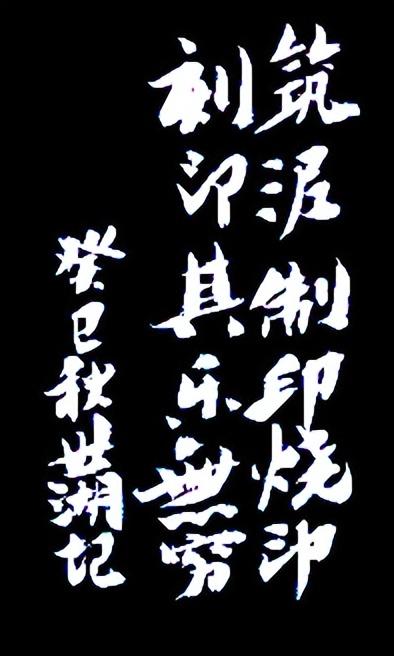 筑泥制印烧印
刻印其乐無穷
癸巳秋世湖记